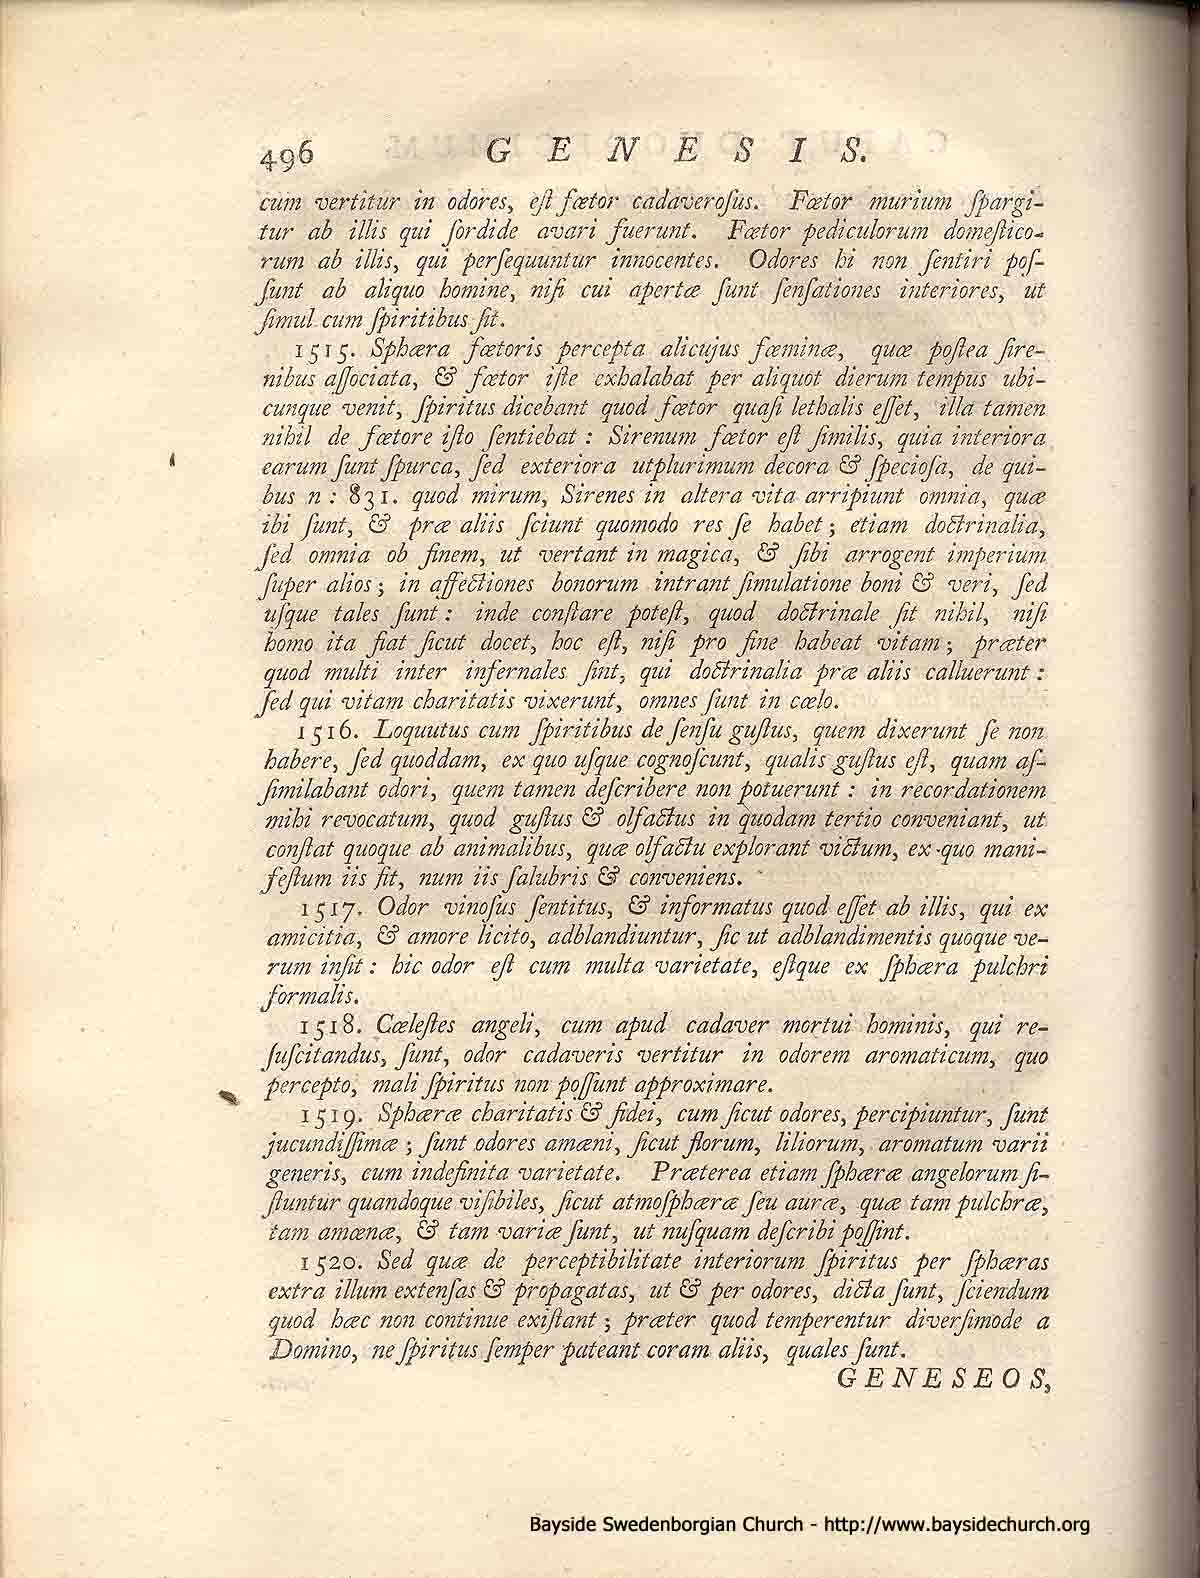 496 GENESIS.
cum vertitur in odores, eſt fœtor cadaveroſus. Fœtor murium ſpargi-
tur ab illis qui ſordide avari fuerunt. Fœtor pediculorum domeſtico-
rum ab illis, qui perſequuntur innocentes. Odores hi non ſentiri poſ-
ſunt ab aliquo homine, niſi cui apertæ ſunt ſenſationes interiores, ut
ſimul cum ſpiritibus ſit.
1515. Sphæra fœtoris percepta alicujus fœminæ, quæ poſtea ſire-
nibus aſſociata, & fœtor iſte exhalabat per aliquot dierum tempus ubi-
cunque venit, ſpiritus dicebant quod fœtor quaſi lethalis eſſet, illa tamen
nihil de fœtore iſto ſentiebat : Sirenum fœtor eſt ſimilis, quia interiora
earum ſunt ſpurca, ſed exteriora utplurimum decora & ſpecioſa, de qui-
bus n : 831. quod mirum, Sirenes in altera vita arripiunt omnia, quæ
ibi ſunt, & præ aliis ſciunt quomodo res ſe habet ; etiam doctrinalia,
ſed omnia ob finem, ut vertant in magica, & ſibi arrogent imperium
ſuper alios ; in affectiones bonorum intrant ſimulatione boni & veri, ſed
uſque tales ſunt : inde conſtare poteſt, quod doctrinale ſit nihil, niſi
homo ita fiat ſicut docet, hoc eſt, niſi pro fine habeat vitam ; præter
quod multi inter infernales ſint, qui doctrinalia præ aliis calluerunt :
ſed qui vitam charitatis vixerunt, omnes ſunt in cœlo.
1516. Loquutus cum ſpiritibus de ſenſu guſtus, quem dixerunt ſe non
habere, ſed quoddam, ex quo uſque cognoſcunt, qualis guſtus eſt, quam aſ-
ſimilabant odori, quem tamen deſcribere non potuerunt : in recordationem
mihi revocatum, quod guſtus & olfactus in quodam tertio conveniant, ut
conſtat quoque ab animalibus, quæ olfactu explorant victum, ex quo mani-
feſtum iis fit, num iis ſalubris & conveniens.
1517. Odor vinoſus ſentitus, & informatus quod eſſet ab illis, qui ex
amicitia, & amore licito, adblandiuntur, ſic ut adblandimentis quoque ve-
rum inſit : hic odor eſt cum multa varietate, eſtque ex ſphæra pulchri
formalis.
1518. Cæleſtes angeli, cum apud cadaver mortui hominis, qui re-
ſuſcitandus, ſunt, odor cadaveris vertitur in odorem aromaticum, quo
percepto, mali ſpiritus non poſſunt approximare.
1519. Sphæræ charitatis & fidei, cum ſicut odores, percipiuntur, ſunt
jucundiſſimæ ; ſunt odores amæni, ſicut florum, liliorum, aromatum varii
generis, cum indefinita varietate. Præterea etiam ſphæræ angelorum ſi-
ſtuntur quandoque viſibiles, ſicut atmoſphæræ ſeu auræ, quæ tam pulchræ,
tam amœnæ, & tam variæ ſunt, ut nuſquam deſcribi poſſint.
1520. Sed quæ de perceptibilitate interiorum ſpiritus per ſphæras
extra illum extenſas & propagatas, ut & per odores, dicta ſunt, ſciendum
quod hæc non continue exiſtant ; præter quod temperentur diverſimode a
Domino, ne ſpiritus ſemper pateant coram aliis, quales ſunt.
GENESEOS,
Bayside Swedenborgian Church - http://www.baysidechurch.org